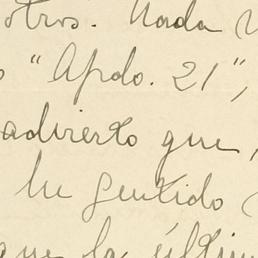 otros. Nada
"Apdo. 21",
advierto que,
he sentido
que la últim